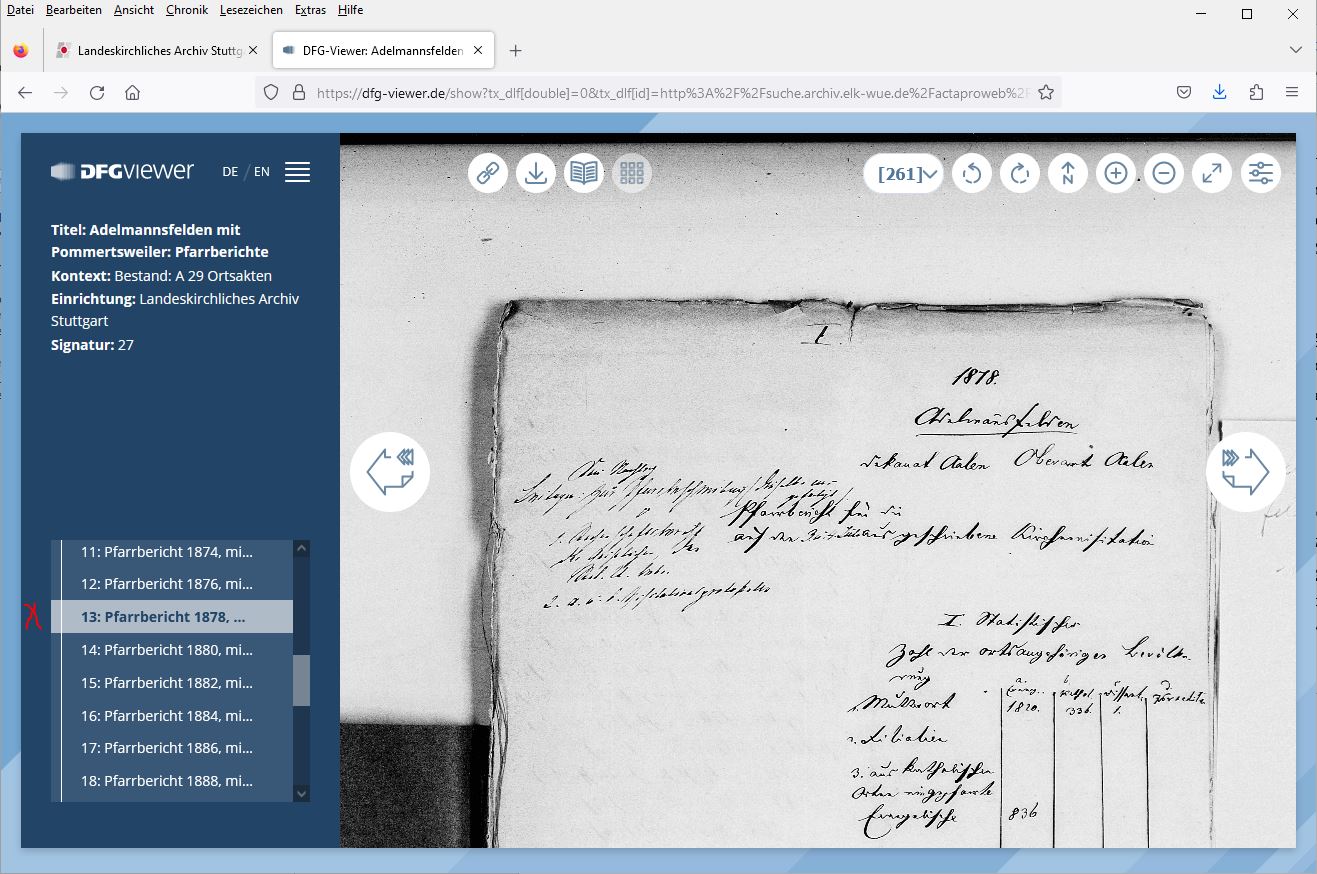 Datei Bearbeiten Ansicht Chronik Lesezeichen Extras Hilfe
Landeskirchliches Archiv Stuttg
DFG-Viewer: Adelmannsfelden
https://dfg-viewer.de/show?tx_dlf[double]=0&tx_dlf[id]=http%3A%2F%2Fsuche.archiv.elk-wue.de%2Factaproweb%2F
DFGVIEWER
DE / EN
[261]
Titel: Adelmannsfelden mit
Pommertsweiler: Pfarrberichte
Kontext: Bestand: A 29 Ortsakten
Einrichtung: Landeskirchliches Archiv
Stuttgart
Signatur: 27
11: Pfarrbericht 1874, mi...
12: Pfarrbericht 1876, mi...
13: Pfarrbericht 1878, ...
14: Pfarrbericht 1880, mi...
15: Pfarrbericht 1882, mi...
16: Pfarrbericht 1884, mi...
17: Pfarrbericht 1886, mi...
18: Pfarrbericht 1888, mi...
1878.
Adelmansfelden
Dekanat Aalen Oberamt Aalen
Pfarrbericht für die
auf den ausgeschriebene Kirchenvisitation
I. Statistisches
Zahl der ortsangehörigen Bevölke-
rung
a. b. c. d.
1. Mutterort 1820. 336. 1.
2. Filialien
3. aus katholischen
Orten eingepfarrte
Evangelische 836